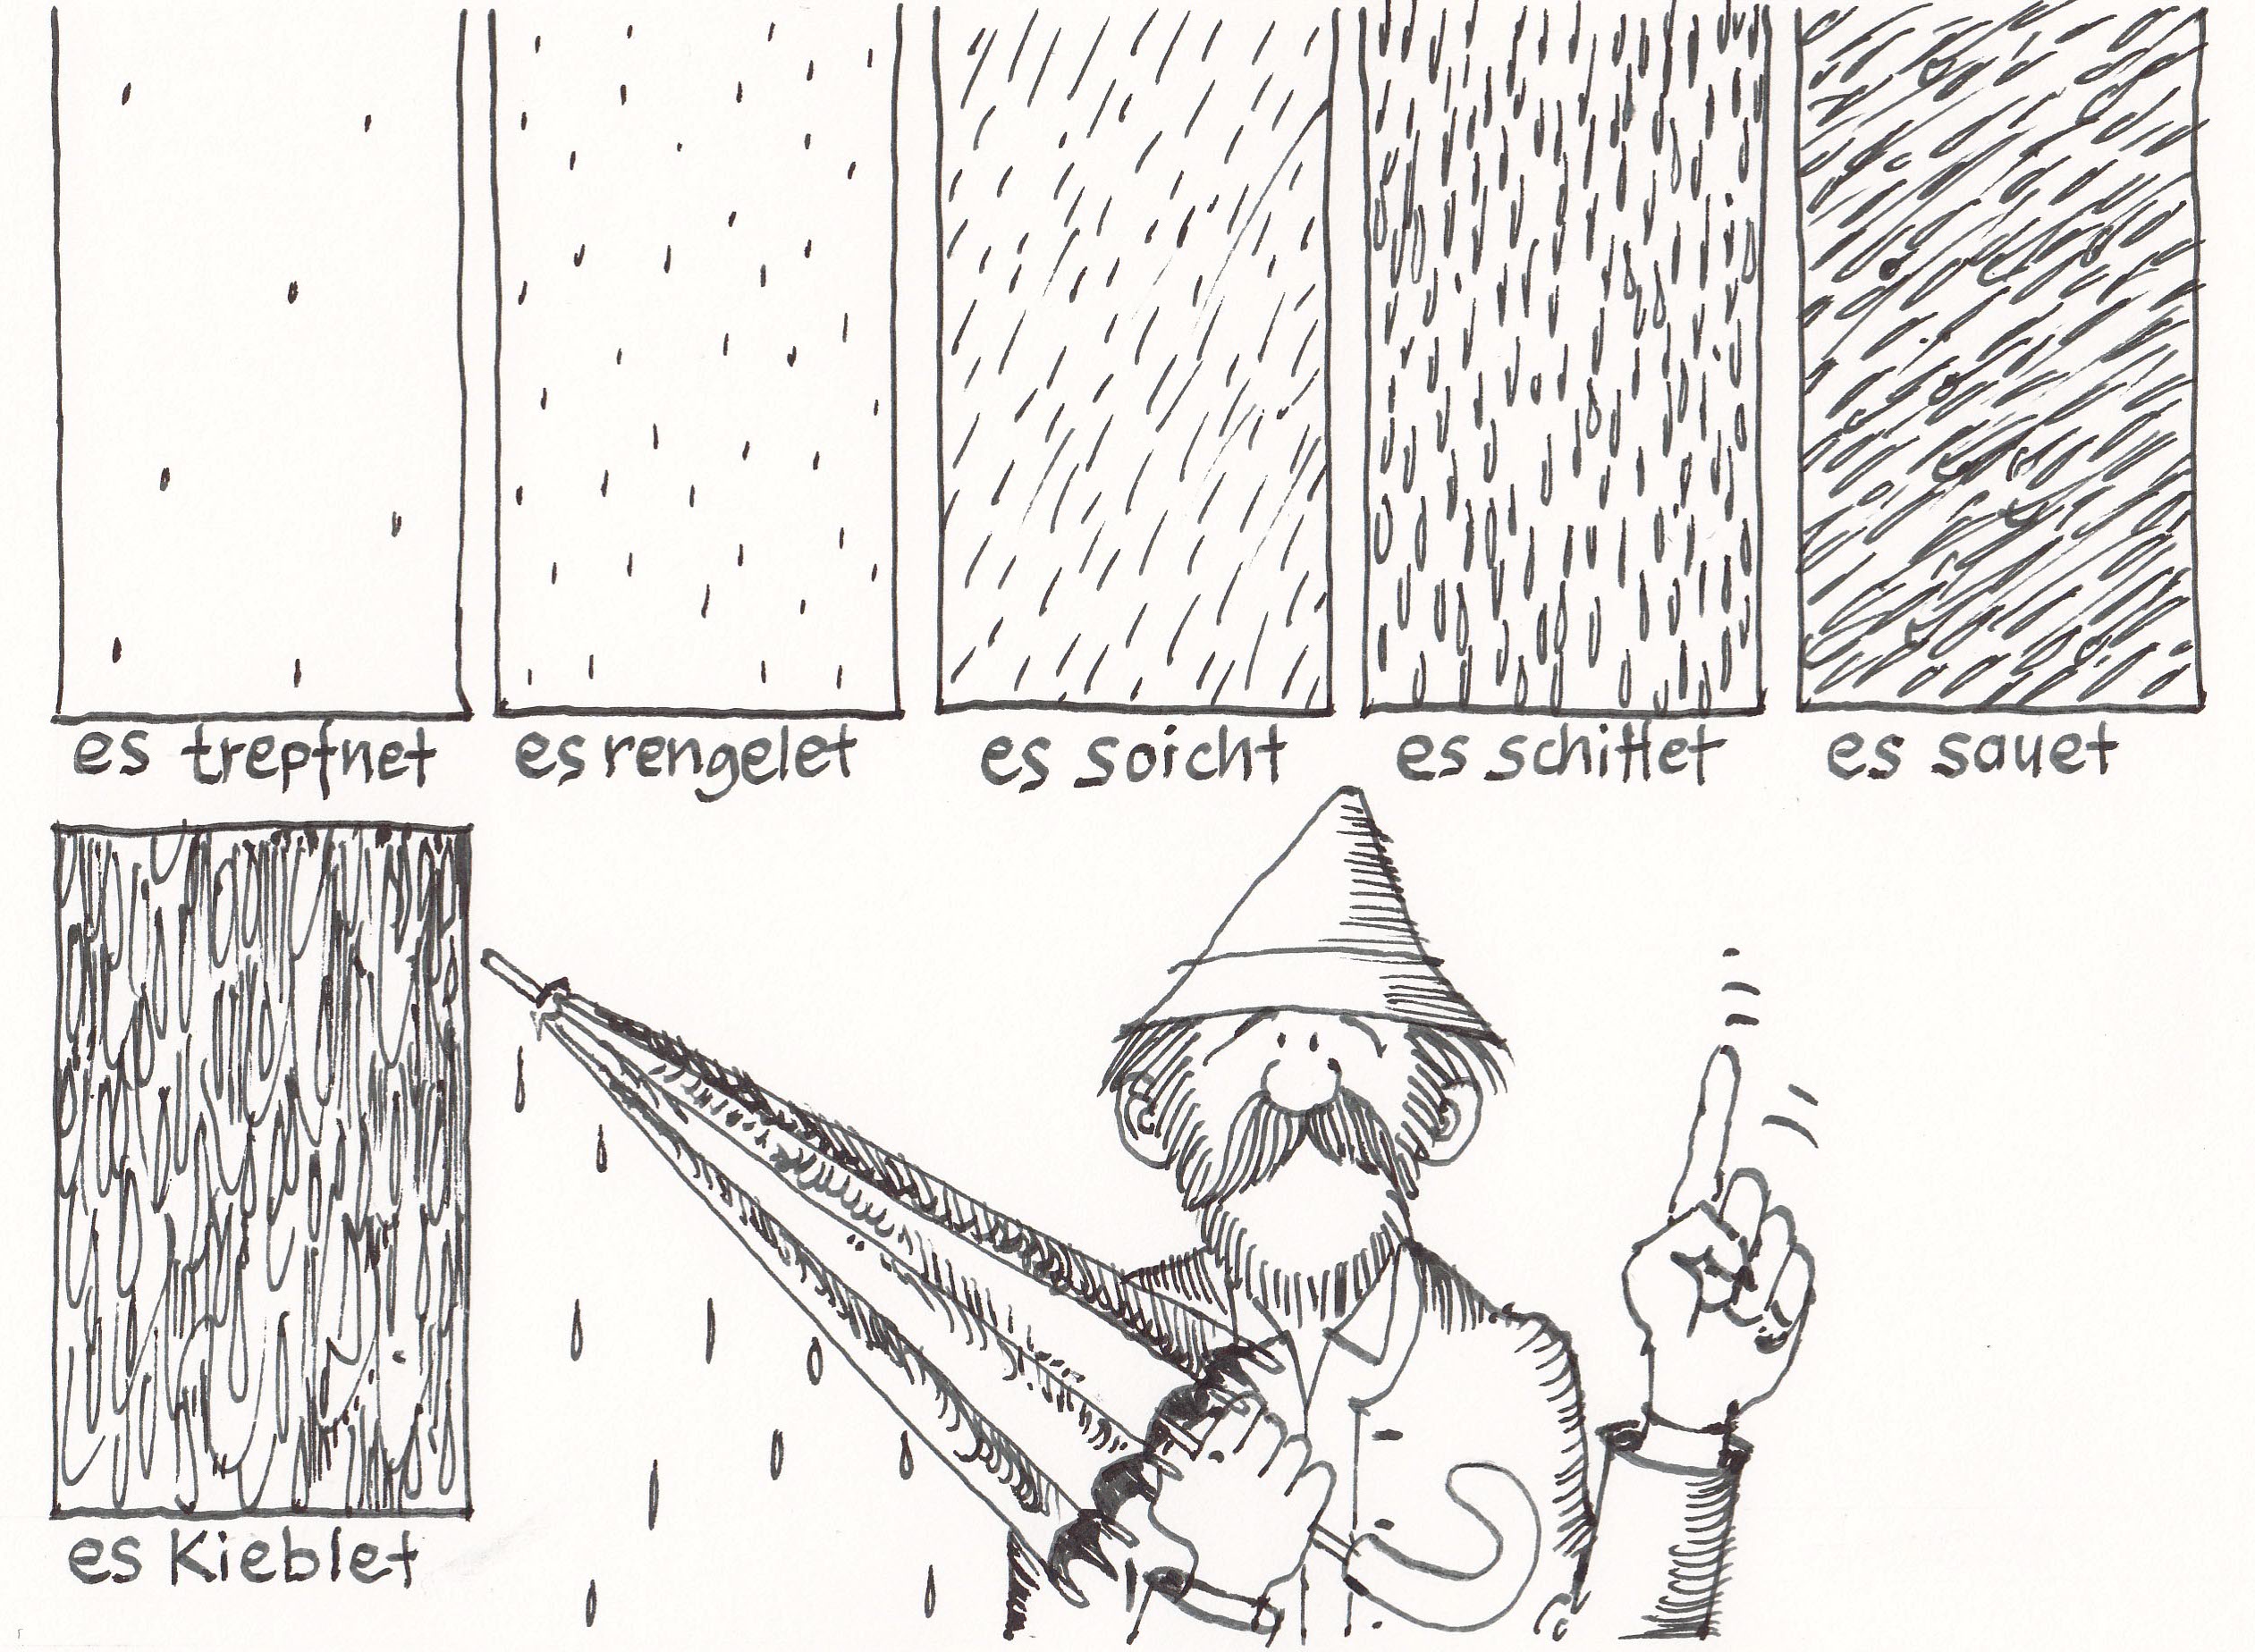 es trepfnet
es rengelet
es soicht
es schittet
es sauet
es Kieblet